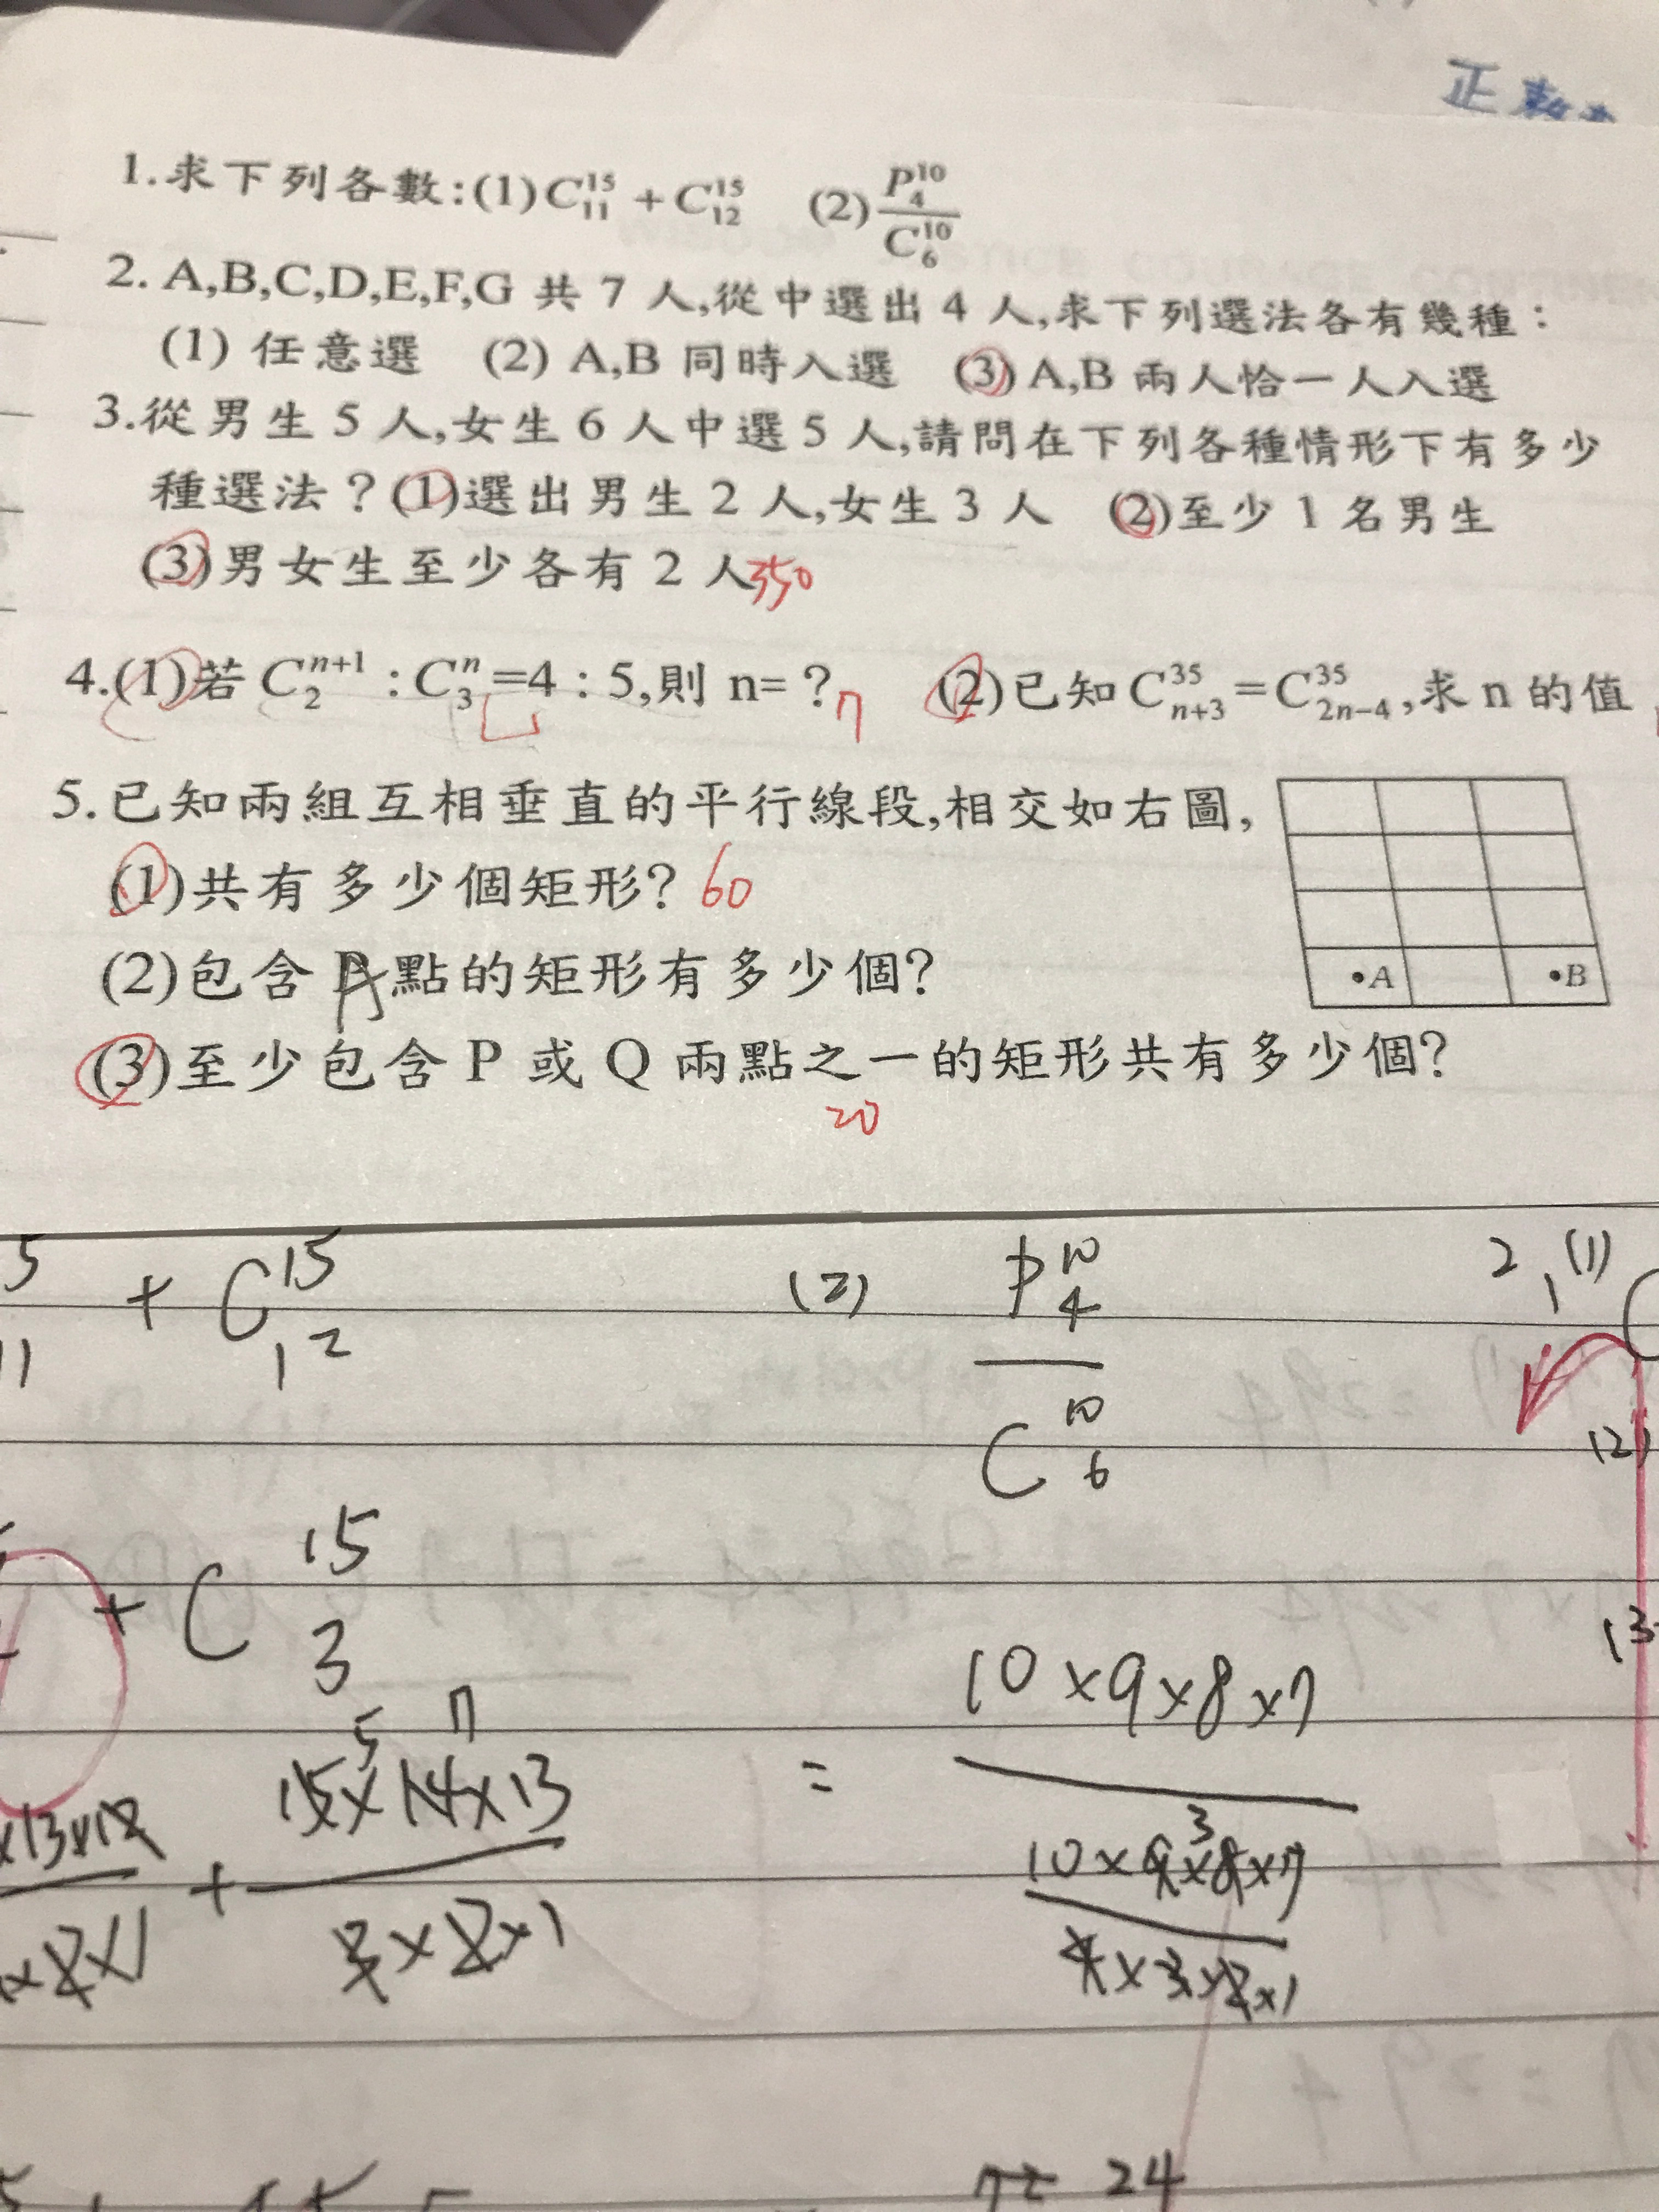 正
1.求下列各數:(1)C₁₁¹⁵ + C₁₂¹⁵ (2) P₄¹⁰ / C₆¹⁰
2. A,B,C,D,E,F,G 共 7 人,從中選出 4 人,求下列選法各有幾種：
(1) 任意選 (2) A,B 同時入選 (3) A,B 兩人恰一人入選
3.從男生 5 人,女生 6 人中選 5 人,請問在下列各種情形下有多少
種選法？(1)選出男生 2 人,女生 3 人 (2)至少 1 名男生
(3)男女生至少各有 2 人 350
4.(1)若 C₂ⁿ⁺¹ : C₃ⁿ =4 : 5,則 n=？7 (2)已知 Cₙ₊₃³⁵ = C₂ₙ₋₄³⁵ ,求 n 的值
5.已知兩組互相垂直的平行線段,相交如右圖,
(1)共有多少個矩形? 60
(2)包含 A 點的矩形有多少個?
•A •B
(3)至少包含 P 或 Q 兩點之一的矩形共有多少個?
20
5 11 + C₁₂¹⁵ (2) P₄¹⁰ / C₆¹⁰ 2,(1) C
(2)
+ C₃¹⁵ (3
5 7
x13x12 + 15x14x13 / 3x2x1 = 10x9x8x7
x2x1 3
10x9x8x7 / 4x3x2x1
24